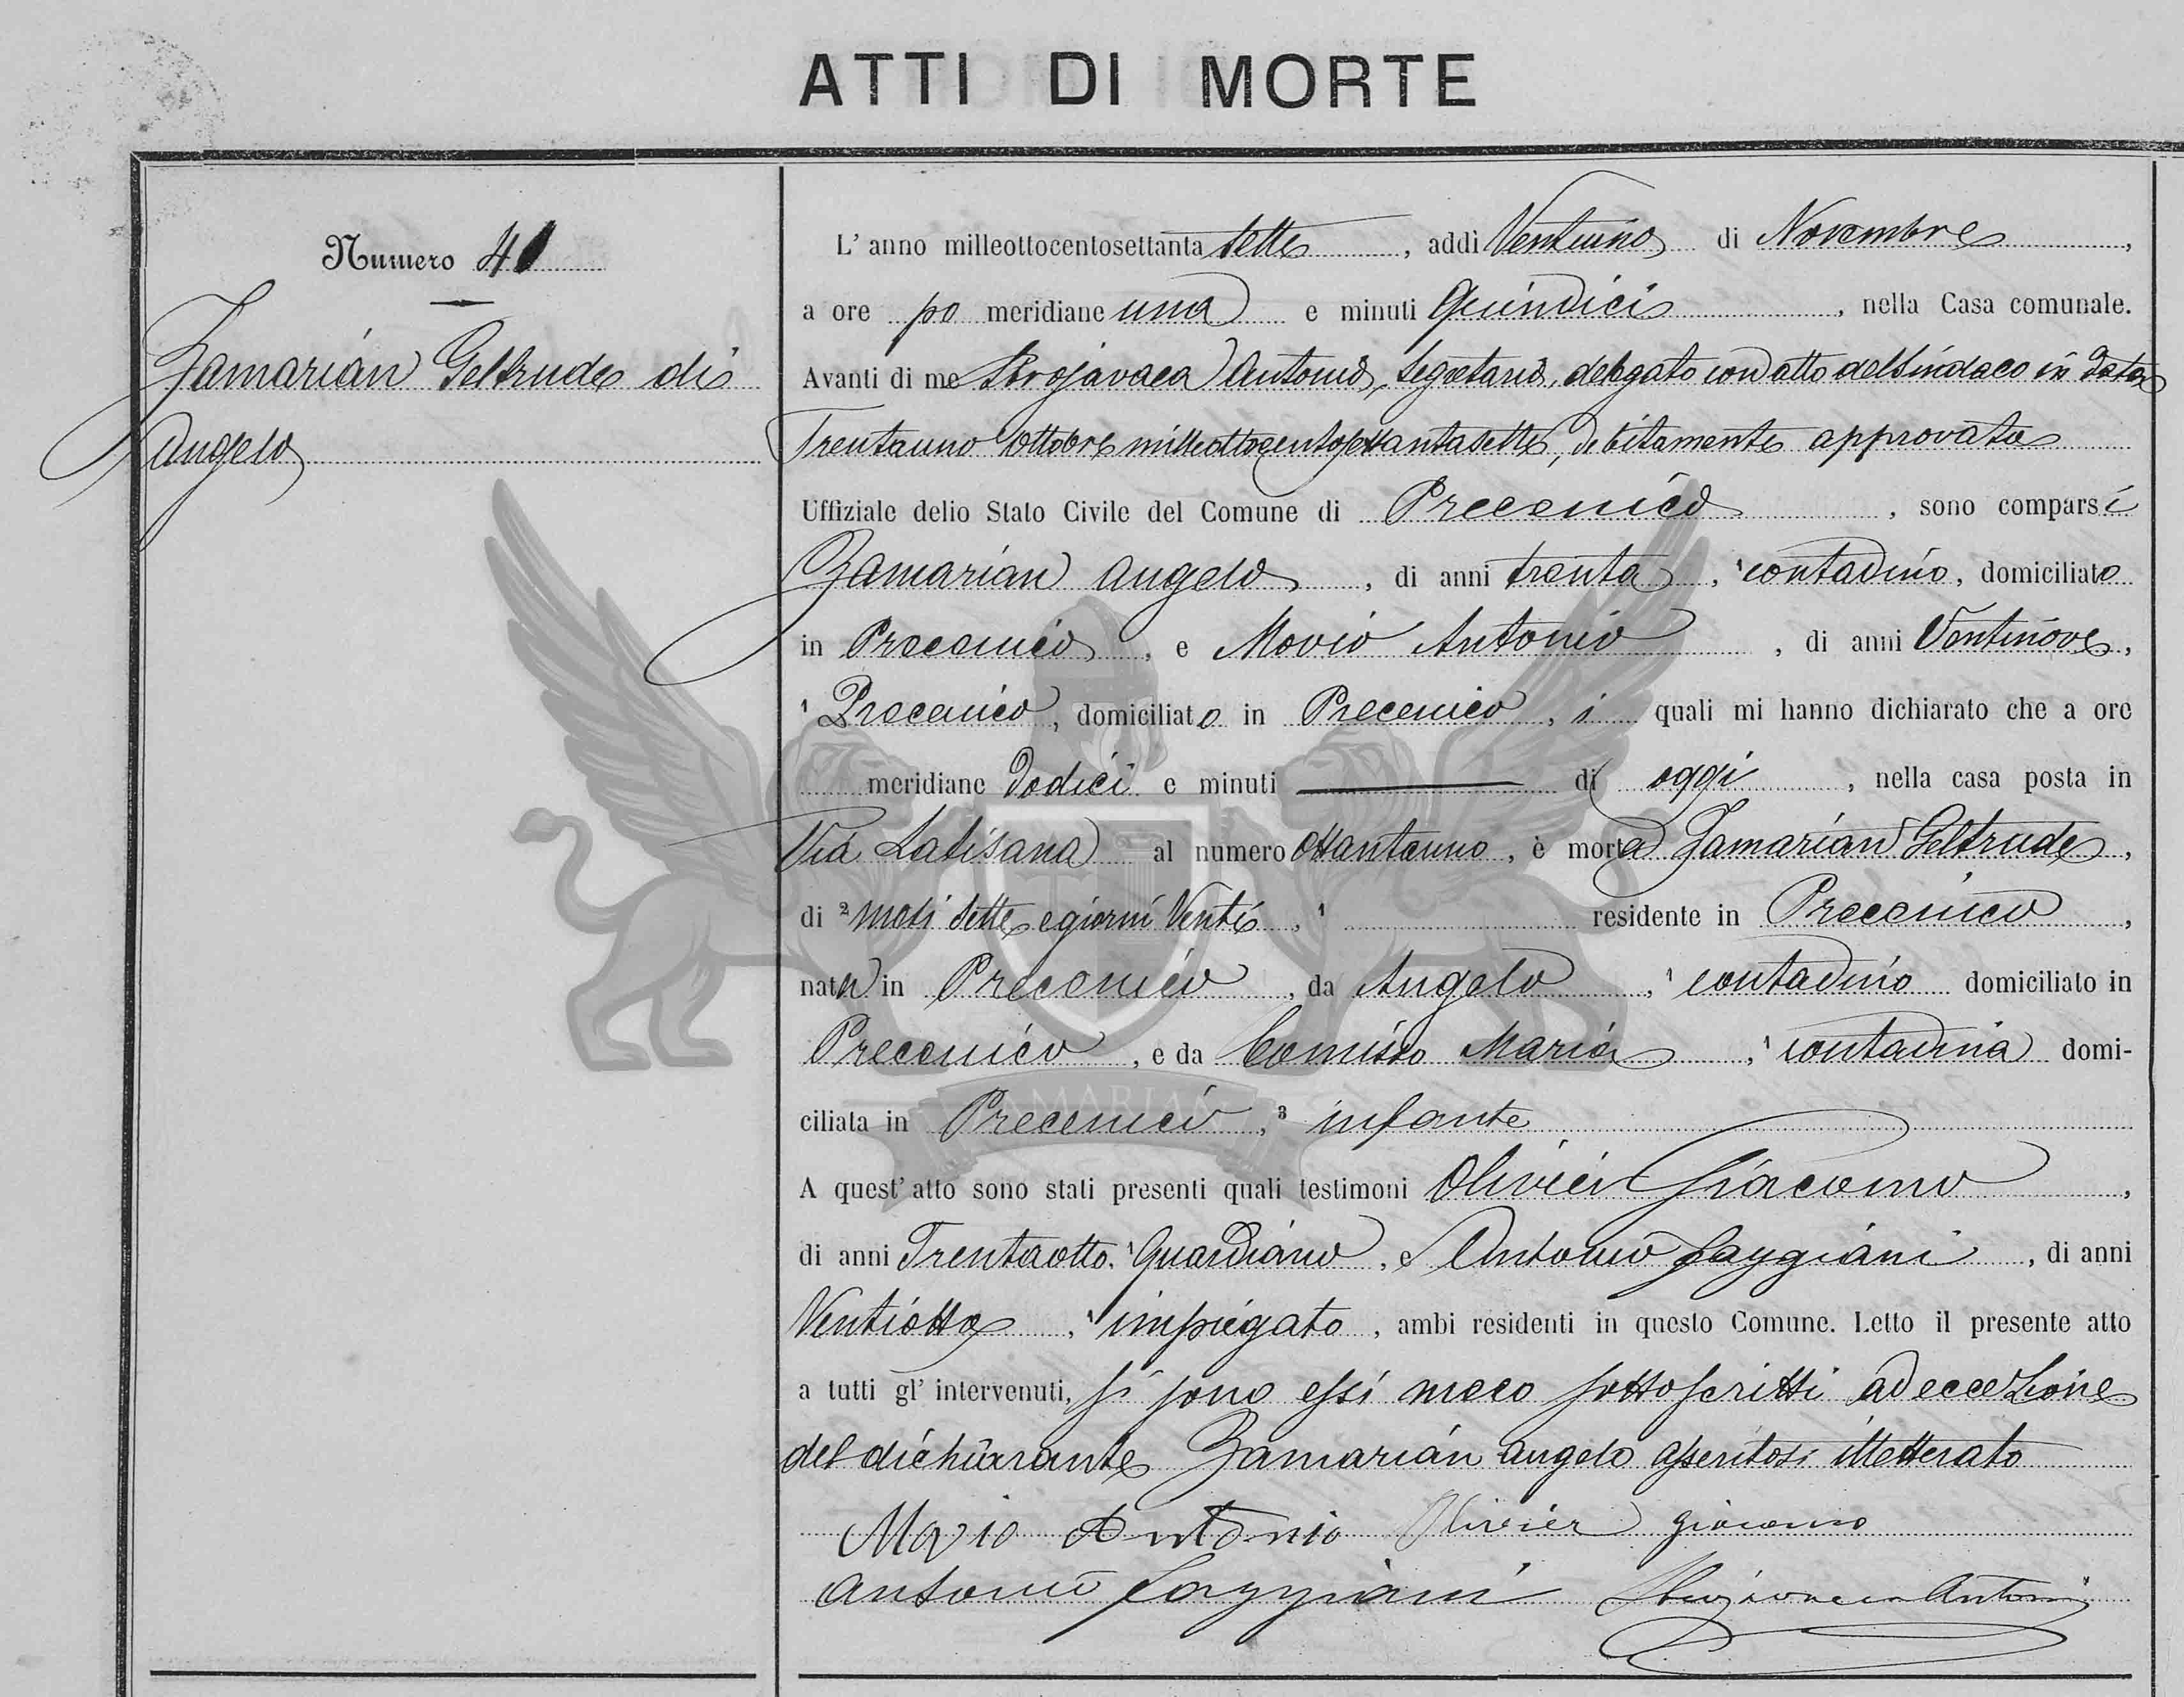 ATTI DI MORTE
Numero 41
Zamarian Geltrude di
Angelo
L' anno milleottocentosettanta sette, addì Ventuno di Novembre,
a ore po meridiane una e minuti Quindici, nella Casa comunale.
Avanti di me Antonio, Segretario, delegato con atto del Sindaco in data
Trentauno Ottobre milleottocentosettantasette, debitamente approvato
Uffiziale dello Stato Civile del Comune di Precenico, sono comparsi
Zamarian Angelo, di anni trenta, ¹ contadino, domiciliato
in Precenico, e Movio Antonio, di anni Ventinove,
¹ Precenico, domiciliato in Precenico, i quali mi hanno dichiarato che a ore
meridiane Dodici e minuti — di oggi, nella casa posta in
Via Latisana al numero Ottantauno, è morta Zamarian Geltrude,
di ² mesi sette e giorni Venti, ¹ residente in Precenico,
nata in Precenico, da Angelo, ¹ contadino domiciliato in
Precenico, e da Comisso Maria, ¹ contadina domi-
ciliata in Precenico, ³ infante
A quest' atto sono stati presenti quali testimoni Olivier Giacomo,
di anni Trentaotto, ¹ Guardiano, e Antonio Faggiani, di anni
Ventiotto, ¹ impiegato, ambi residenti in questo Comune. Letto il presente atto
a tutti gl' intervenuti, si sono essi meco sottoscritti ad eccezione
del dichiarante Zamarian Angelo asseritosi illetterato
Movio Antonio Olivier Giacomo
Antonio Faggiani Antonio